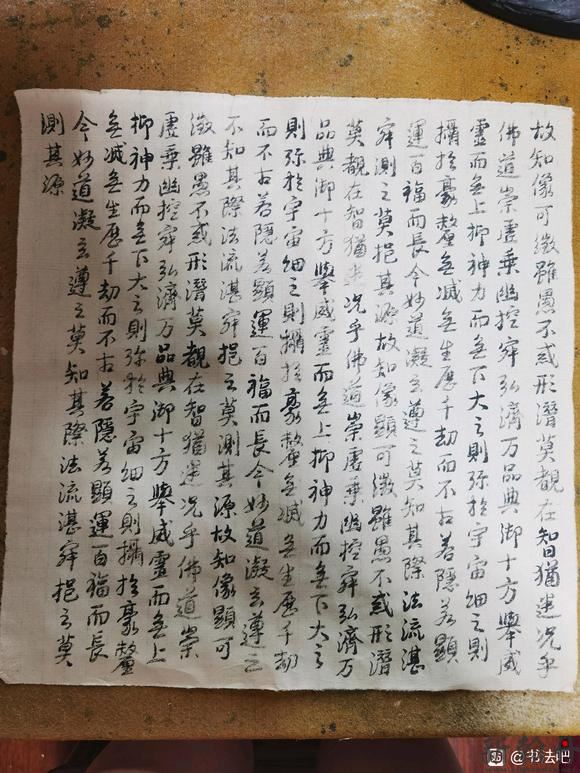 故知像可徵雖愚不惑形潛莫覩在智猶迷况乎
佛道崇虛乗幽控寂弘濟万品典御十方舉威
靈而無上抑神力而無下大之則弥於宇宙細之則
攝於豪釐無滅無生歷千劫而不古若隱若顯
運百福而長今妙道凝玄遵之莫知其際法流湛
寂測之莫挹其源故知像顯可徵雖愚不惑形潛
莫覩在智猶迷况乎佛道崇虛乗幽控寂弘濟万
品典御十方舉威靈而無上抑神力而無下大之
則弥於宇宙細之則攝於豪釐無滅無生歷千劫
而不古若隱若顯運百福而長今妙道凝玄遵之
不知其際法流湛寂挹之莫測其源故知像顯可
徵雖愚不惑形潛莫覩在智猶迷况乎佛道崇
虛乗幽控寂弘濟万品典御十方舉威靈而無上
抑神力而無下大之則弥於宇宙細之則攝於豪釐
無滅無生歷千劫而不古若隱若顯運百福而長
今妙道凝玄遵之莫知其際法流湛寂挹之莫
測其源
@书法吧